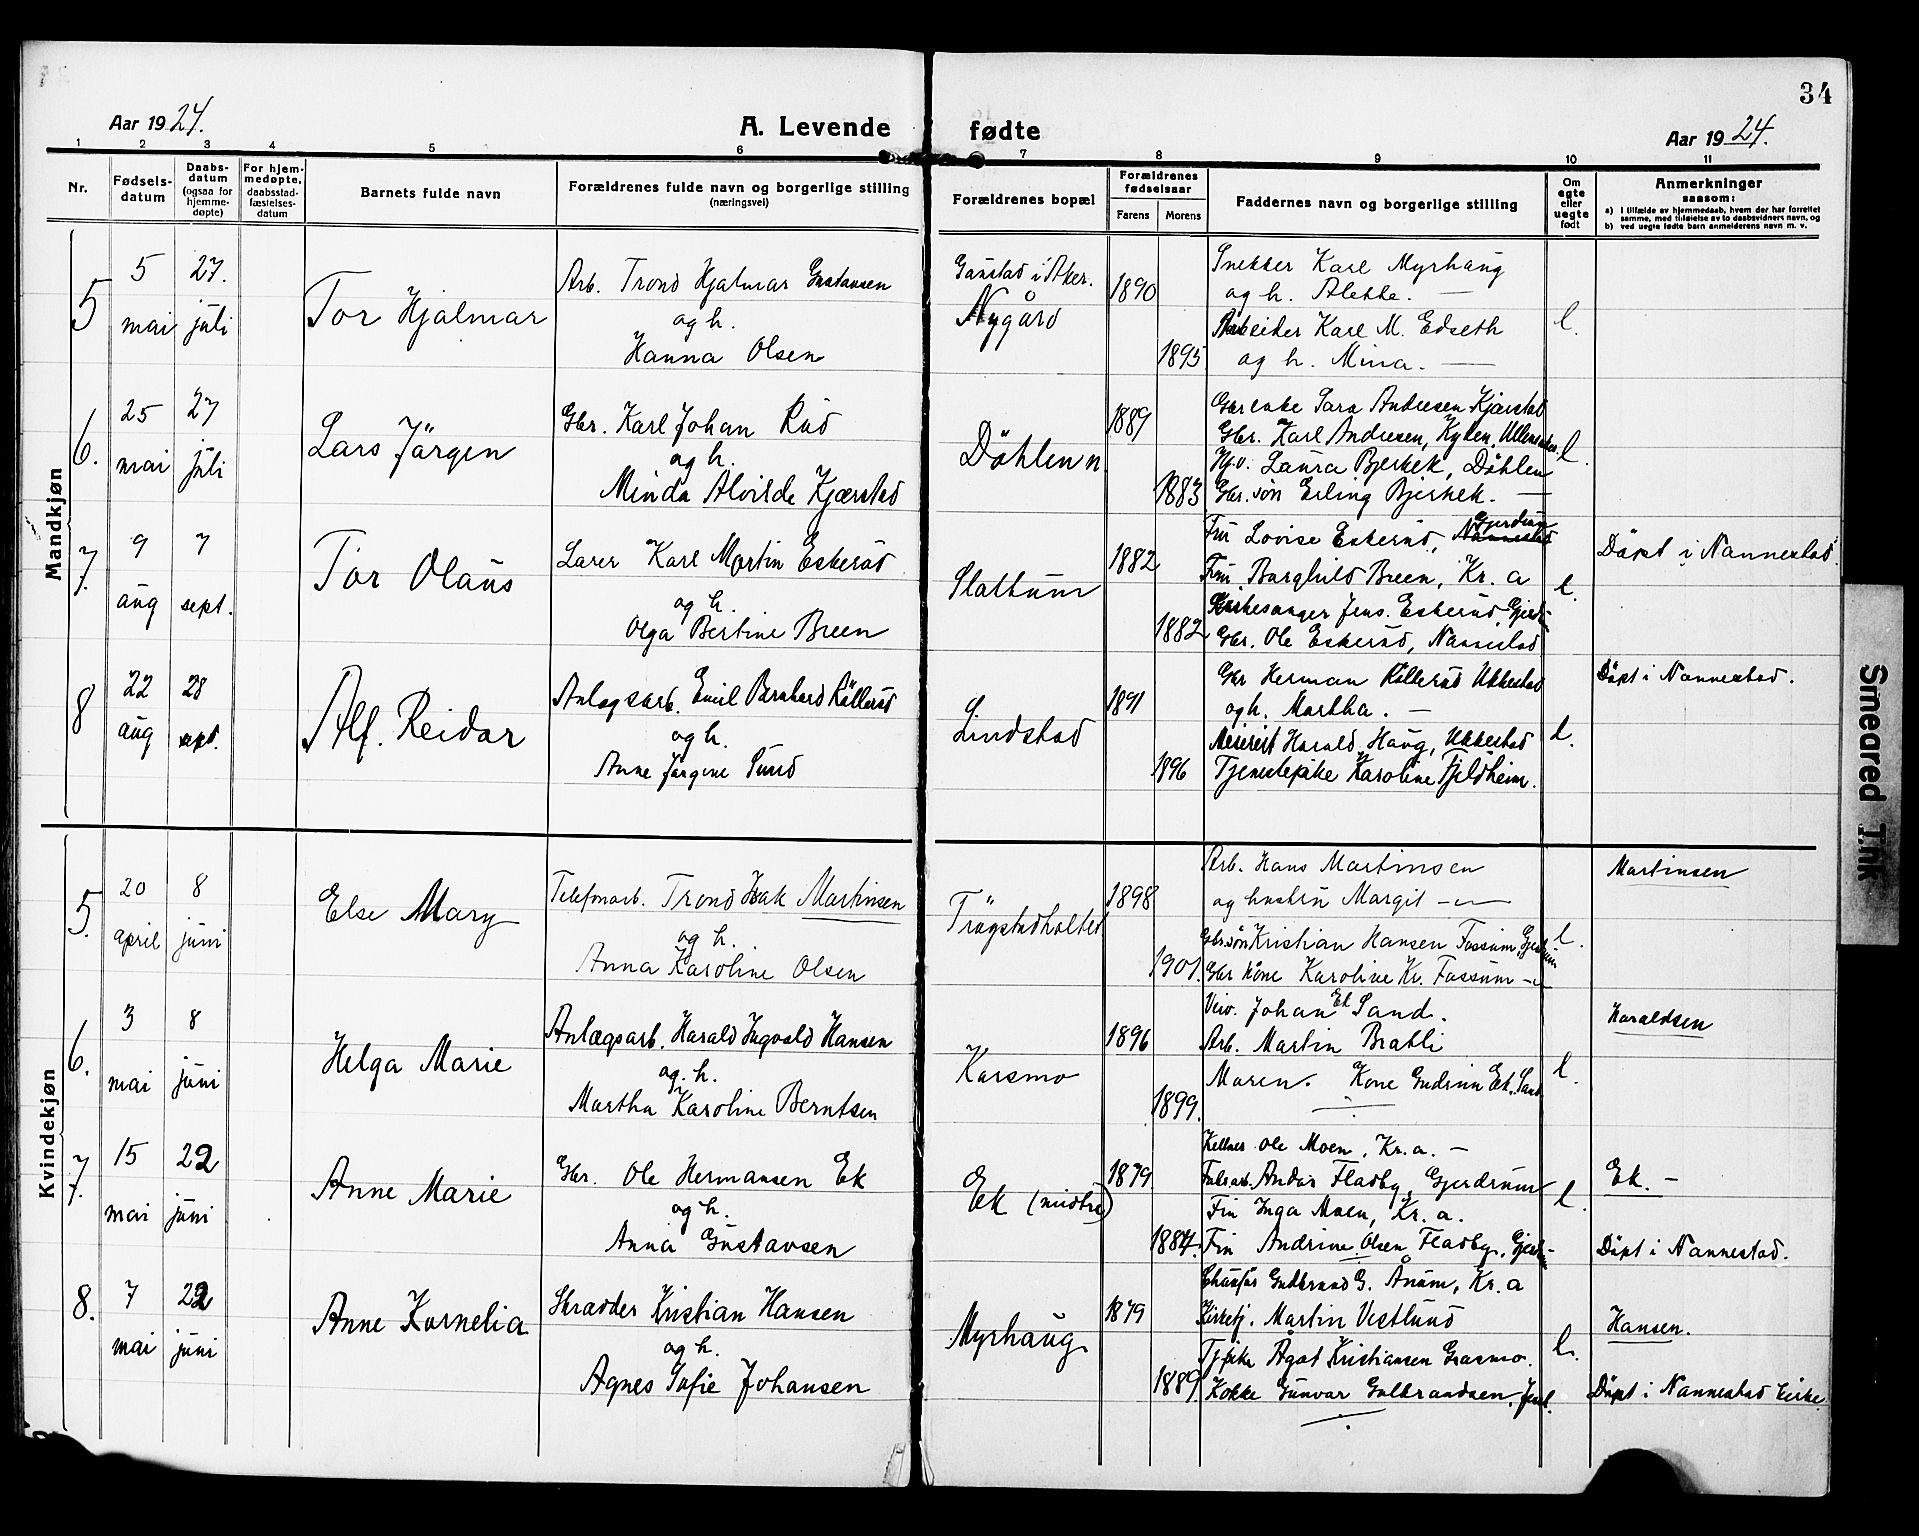 34
Aar 1924.
A. Levende fødte
Aar 1924.
1 2 3 4 5 6 7 8 9 10 11
Nr.
Fødsels-
datum
Daabs-
datum
(ogsaa for
hjemme-
døpte)
For hjem-
medøpte,
daabsstad-
fæstelses-
datum
Barnets fulde navn
Forældrenes fulde navn og borgerlige stilling
(næringsvei)
Forældrenes bopæl
Forældrenes
fødselsaar
Farens
Morens
Faddernes navn og borgerlige stilling
Om
egte
eller
uegte
født
Anmerkninger
saasom:
a) I tilfælde av hjemmedaab, hvem der har forrettet
samme, med tilføielse av to daabsvidners navn, og
b) ved uegte fødte barn anmelderens navn m. v.
Mandkjøn
5
5
mai
27.
juli
Tor Hjalmar
Arb. Trond Hjalmar Gustavsen
og h.
Hanna Olsen
Gaustad i Aker.
Nygård
1890
1895
Snekker Karl Myrhaug
og h. Alette. —
Arbeider Karl M. Edseth
og h. Mina. —
l.
6.
25
mai
27
juli
Lars Jörgen
Gbr. Karl Johan Rud
og h.
Minda Alvilde Kjærstad
Döhlen n.
1889
1883
Gbrenke Sara Andresen Kjærstad
Gbr. Karl Andresen, Kylen, Ullensaker
Hv. Laura Bjerkek, Döhlen
Gbr. søn Erling Bjerkek. —
l.
7.
9
aug
7
sept.
Tor Olaus
Lærer Karl Martin Eskerud
og h.
Olga Bertine Breen
Slattum
1882
1882
Fru Lovise Eskerud, Nannestad Gjerdrum
Frøu Borghild Breen, Kr. a
Kirkesanger Jens. Eskerud, Gjerdr.
Gbr. Ole Eskerud, Nannestad
l.
Döpt i Nannestad.
8
22
aug
28
sept.
Alf. Reidar
Anlagsarb. Emil Bernhard Köllerud
og h.
Anne Jörgine Sund
Lindstad
1891
1896
Gbr Herman Köllerud Ukkestad
og h. Martha. —
Meierist Harald Haug, Ukkestad
Tjenestepike Karoline Fjeldheim.
l.
Döpt i Nannestad.
Kvindekjøn
5.
20
april
8
juni
Else Mary
Telefonarb. Trond Isak Martinsen
og h.
Anna Karoline Olsen
Trögstadholtet
1898
1901.
Arb. Hans Martinsen
og hustru Margit —
Gbr. søn Kristian Hansen Fossum, Gjerdrum
Gbr kone Karoline Kr. Fossum —
l.
Martinsen
6.
3
mai
8
juni
Helga Marie
Anlægsarb. Harald Ingvald Hansen
og. h.
Martha Karoline Berntsen
Karsmo
1896
1899.
Veiv. Johan Ek Sand.
Arb. Martin Bratli
Maren. Kone Gudrun Ek. Sand
l.
Haraldsen
7.
15
mai
22
juni
Anne Marie
Gbr. Ole Hermansen Ek
og h.
Anna Gustavsen
Ek (midtre)
1879
1884.
Kellner Ole Moen, Kr. a. —
Anders Fladby, Gjerdrum
Fru Inga Moen, Kr. a.
Fru Andrine Olsen Fladby, Gjerdr.
l.
Ek. —
Döpt i Nannestad.
8.
7
mai
22
juni
Anne Kornelia
Skrædder Kristian Hansen
og h.
Agnes Sofie Johansen
Myrhaug
1879
1889.
Chaufør Gudbrand G. Ånum, Kr. a
Kirketj. Martin Vestlund
Tj pike Ågot Kristiansen Grasmo.
Kokke Gunvor Gulbrandsen,
l.
Hansen.
Döpt i Nannestad kirke
Smeared Ink